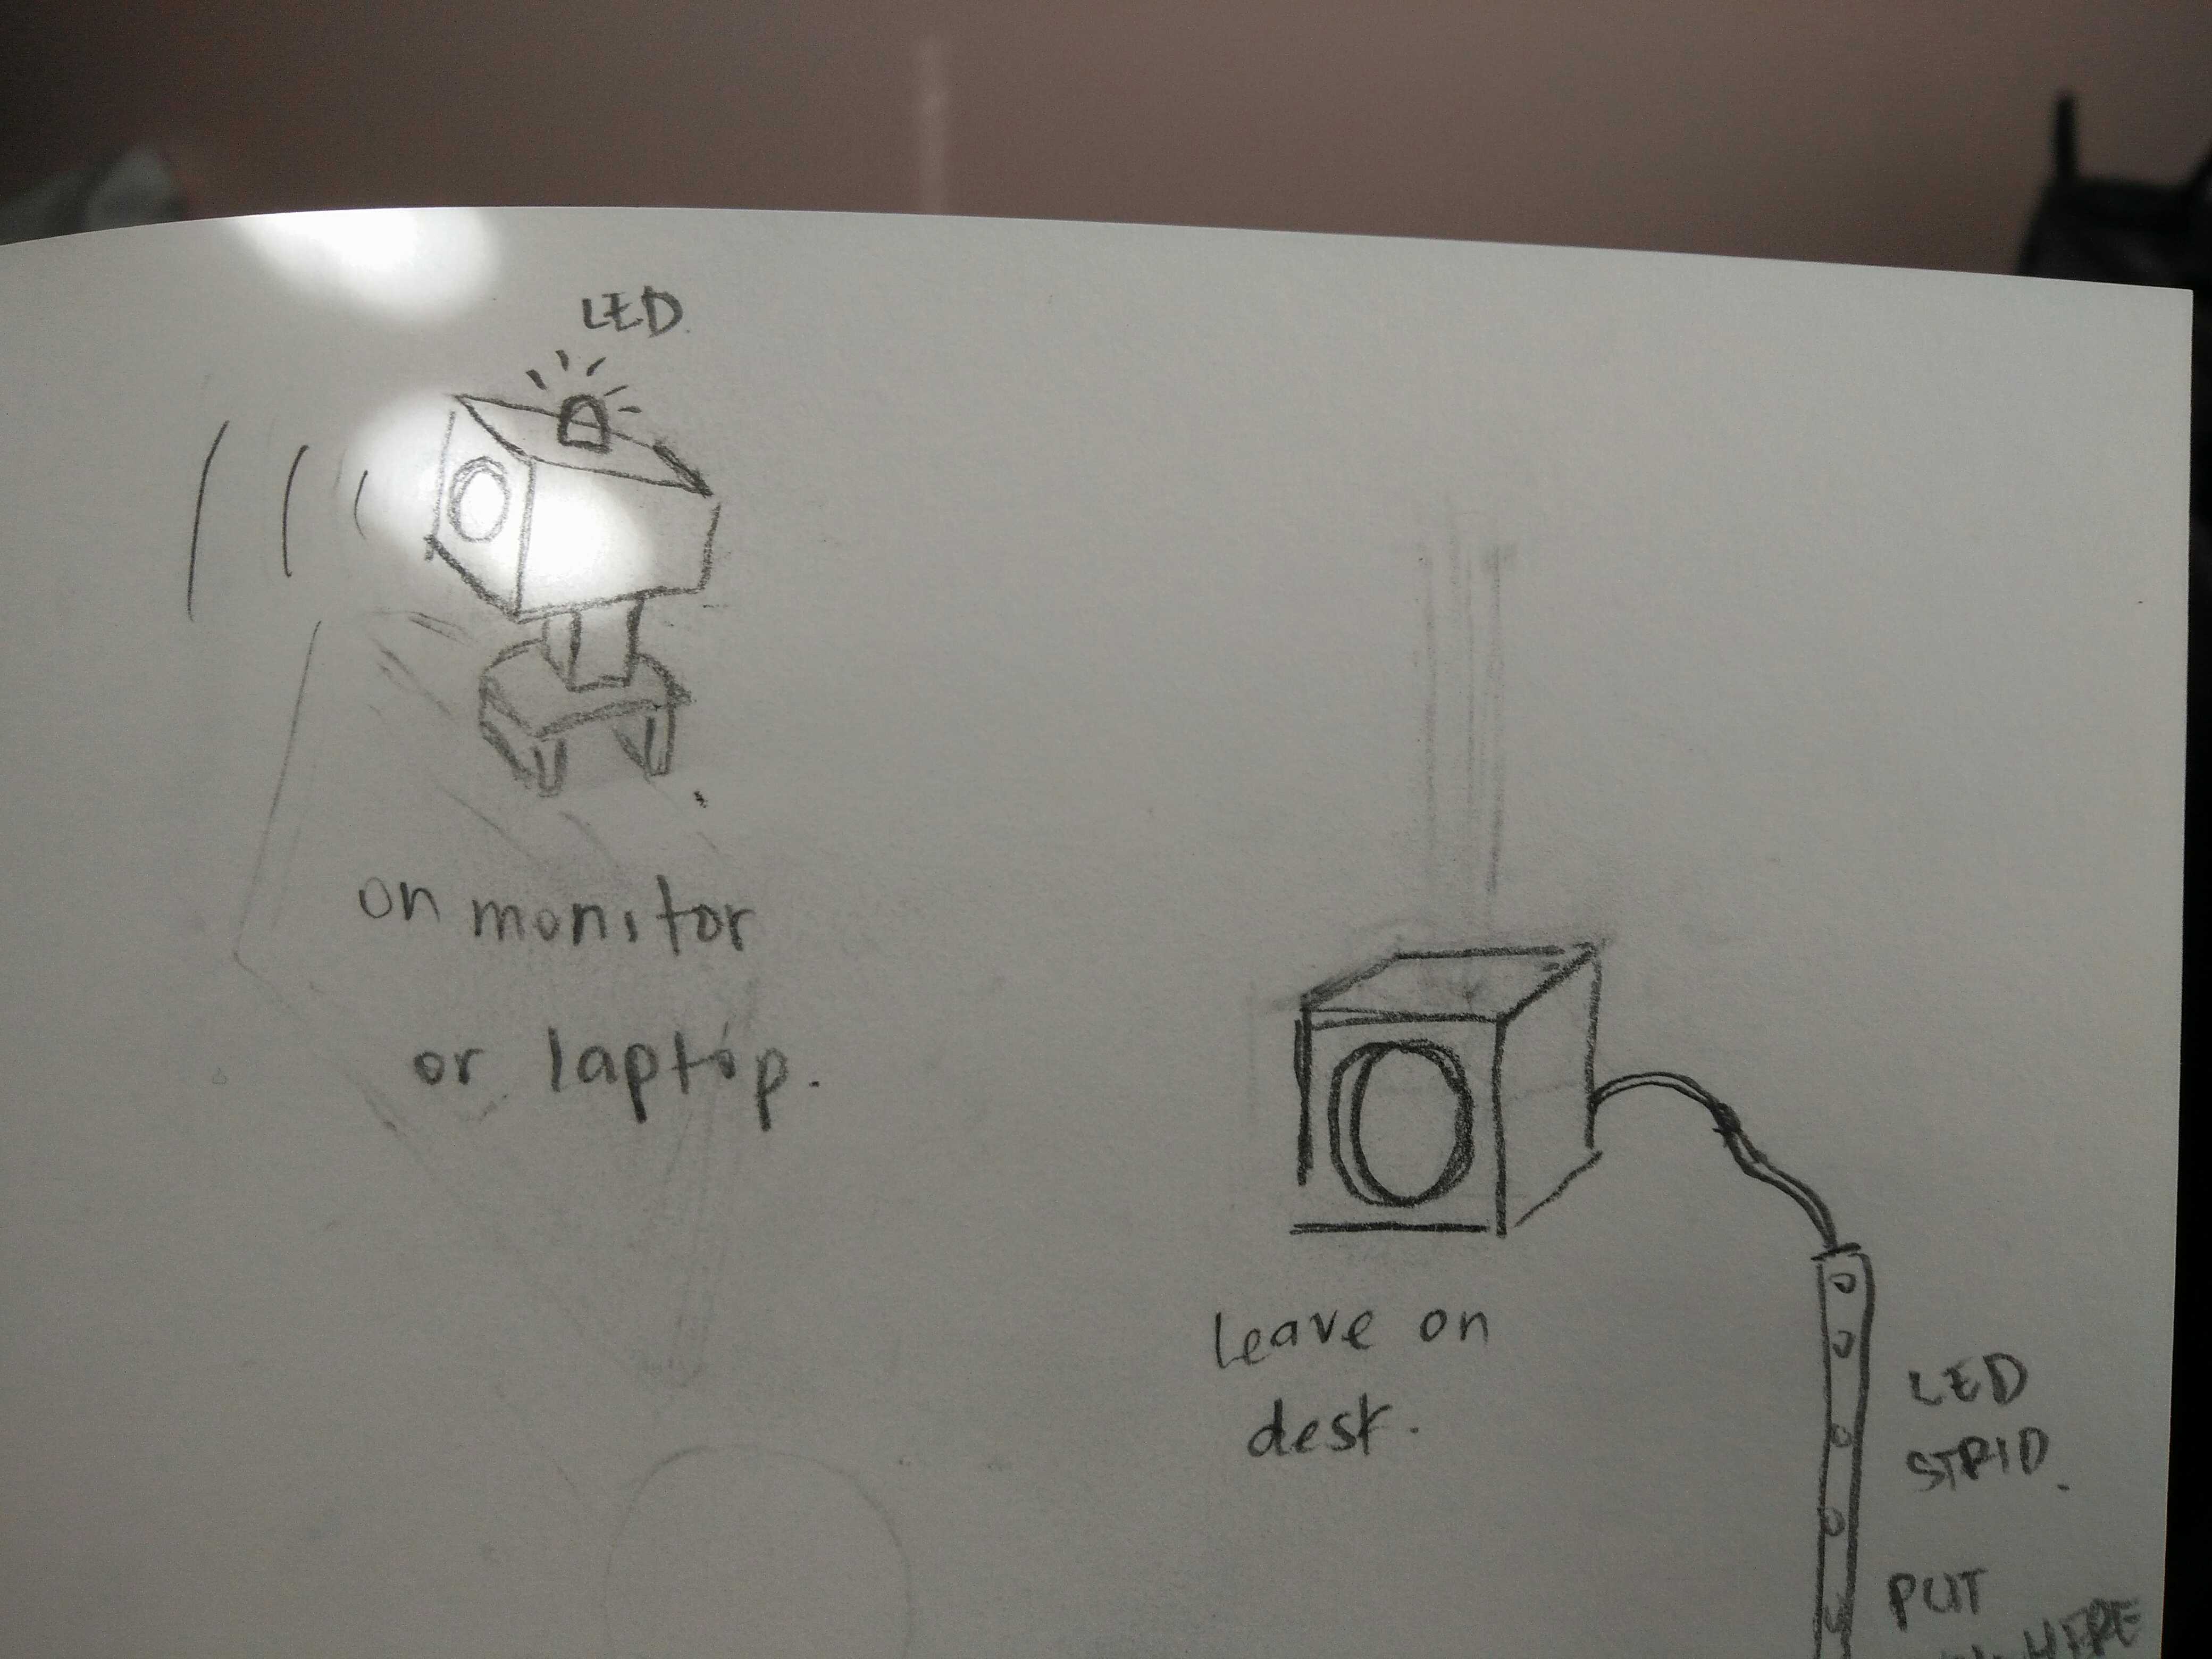 LED
on monitor
or laptop.
leave on
desk.
LED
STRIP.
PUT